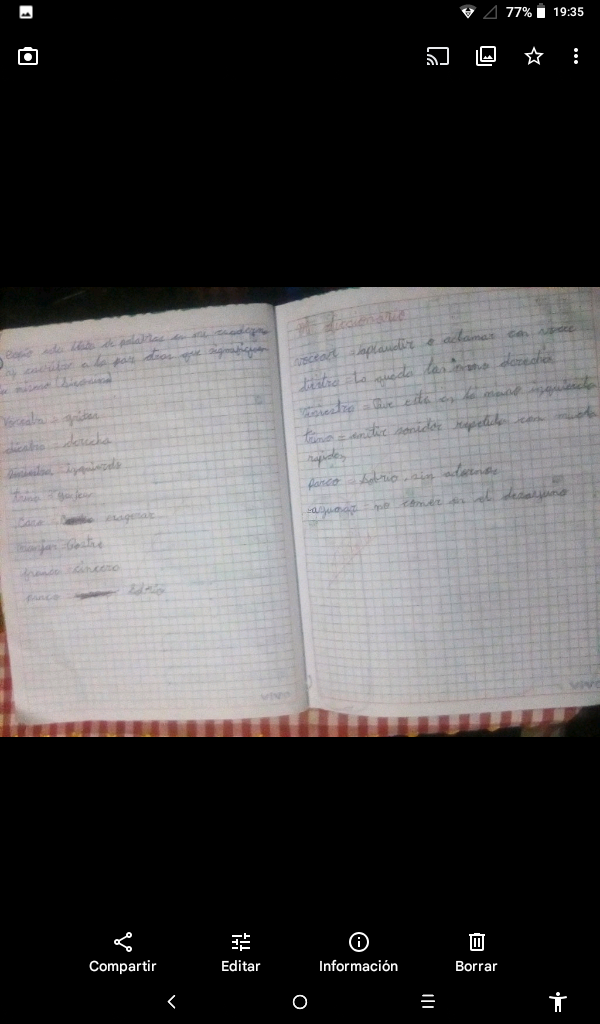 77% 19:35
copio esta lista de palabras en mi cuaderno
y escribir a la par otras que signifiquen
lo mismo (sinonimo)
Vocear = gritar
diestra = derecha
siniestra = izquierda
trino =
exagerar
manjar
franco = sincero
parco = Sobrio
Mi diccionario
vocear = aplaudir o aclamar con voces
diestro = lo queda la mano derecha
siniestro = Que esta en la mano izquierda
trino = emitir sonidos repetido con mucha
rapidez
parco = Sobrio, sin adornos
= no comer en el desayuno
VIVO
VIVO
Compartir
Editar
Información
Borrar